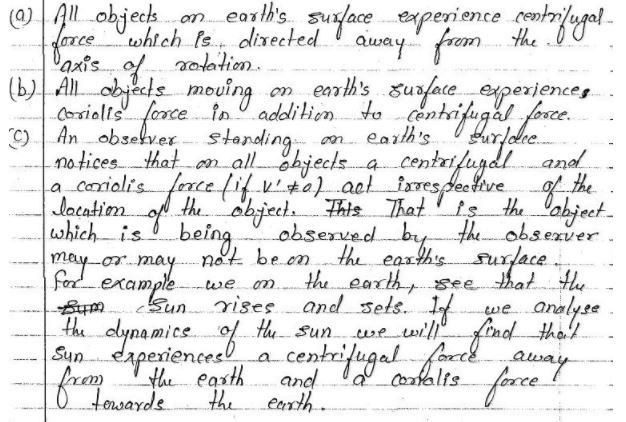 (a) All objects on earth's surface experience centrifugal
force which is directed away from the
axis of rotation.
(b) All objects moving on earth's surface experiences
coriolis force in addition to centrifugal force.
(C) An observer standing on earth's surface
notices that on all objects a centrifugal and
a coriolis force (if v' ≠ 0) act irrespective of the
location of the object. This That is the object
which is being observed by the observer
may or may not be on the earth's surface.
For example we on the earth, see that the
Sum Sun rises and sets. If we analyse
the dynamics of the sun we will find that
sun experiences a centrifugal force away
from the earth and a coriolis force
towards the earth.